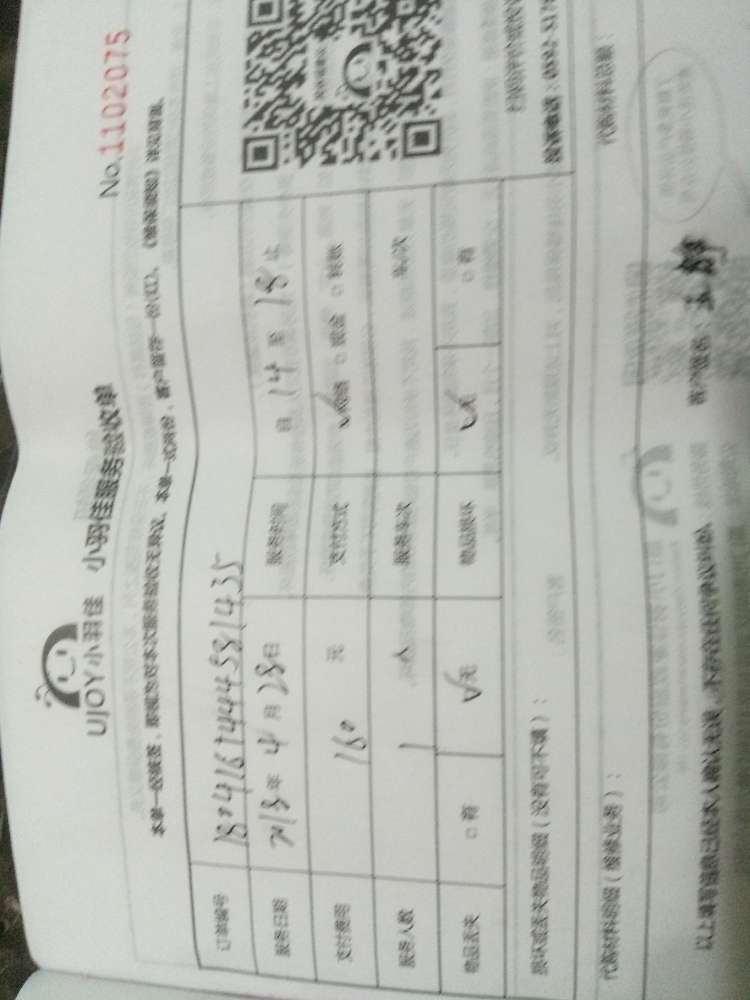 No.1102075
UJOY小羽佳 小羽佳服务验收单
本单一经签签，即视为对本次服务验收无异议。本单一式两份，客户留存一份(红)。《维保须知》详见背面。
订单编号
服务日期 2018年4月28日 服务时间 自 14 至 18 止
支付费用 180 元 支付方式 网络 □ 现金 □ 转账
服务人数 1 人 服务车次 车/次
物品丢失 □ 有 无 物品损坏 无 □ 有
损坏或丢失物品明细（没有可不填）：
代购材料明细（维修业务）： 代购材料总额：
以上填写信息已经本人确认无误，不存在任何争议纠纷。 客户签名：